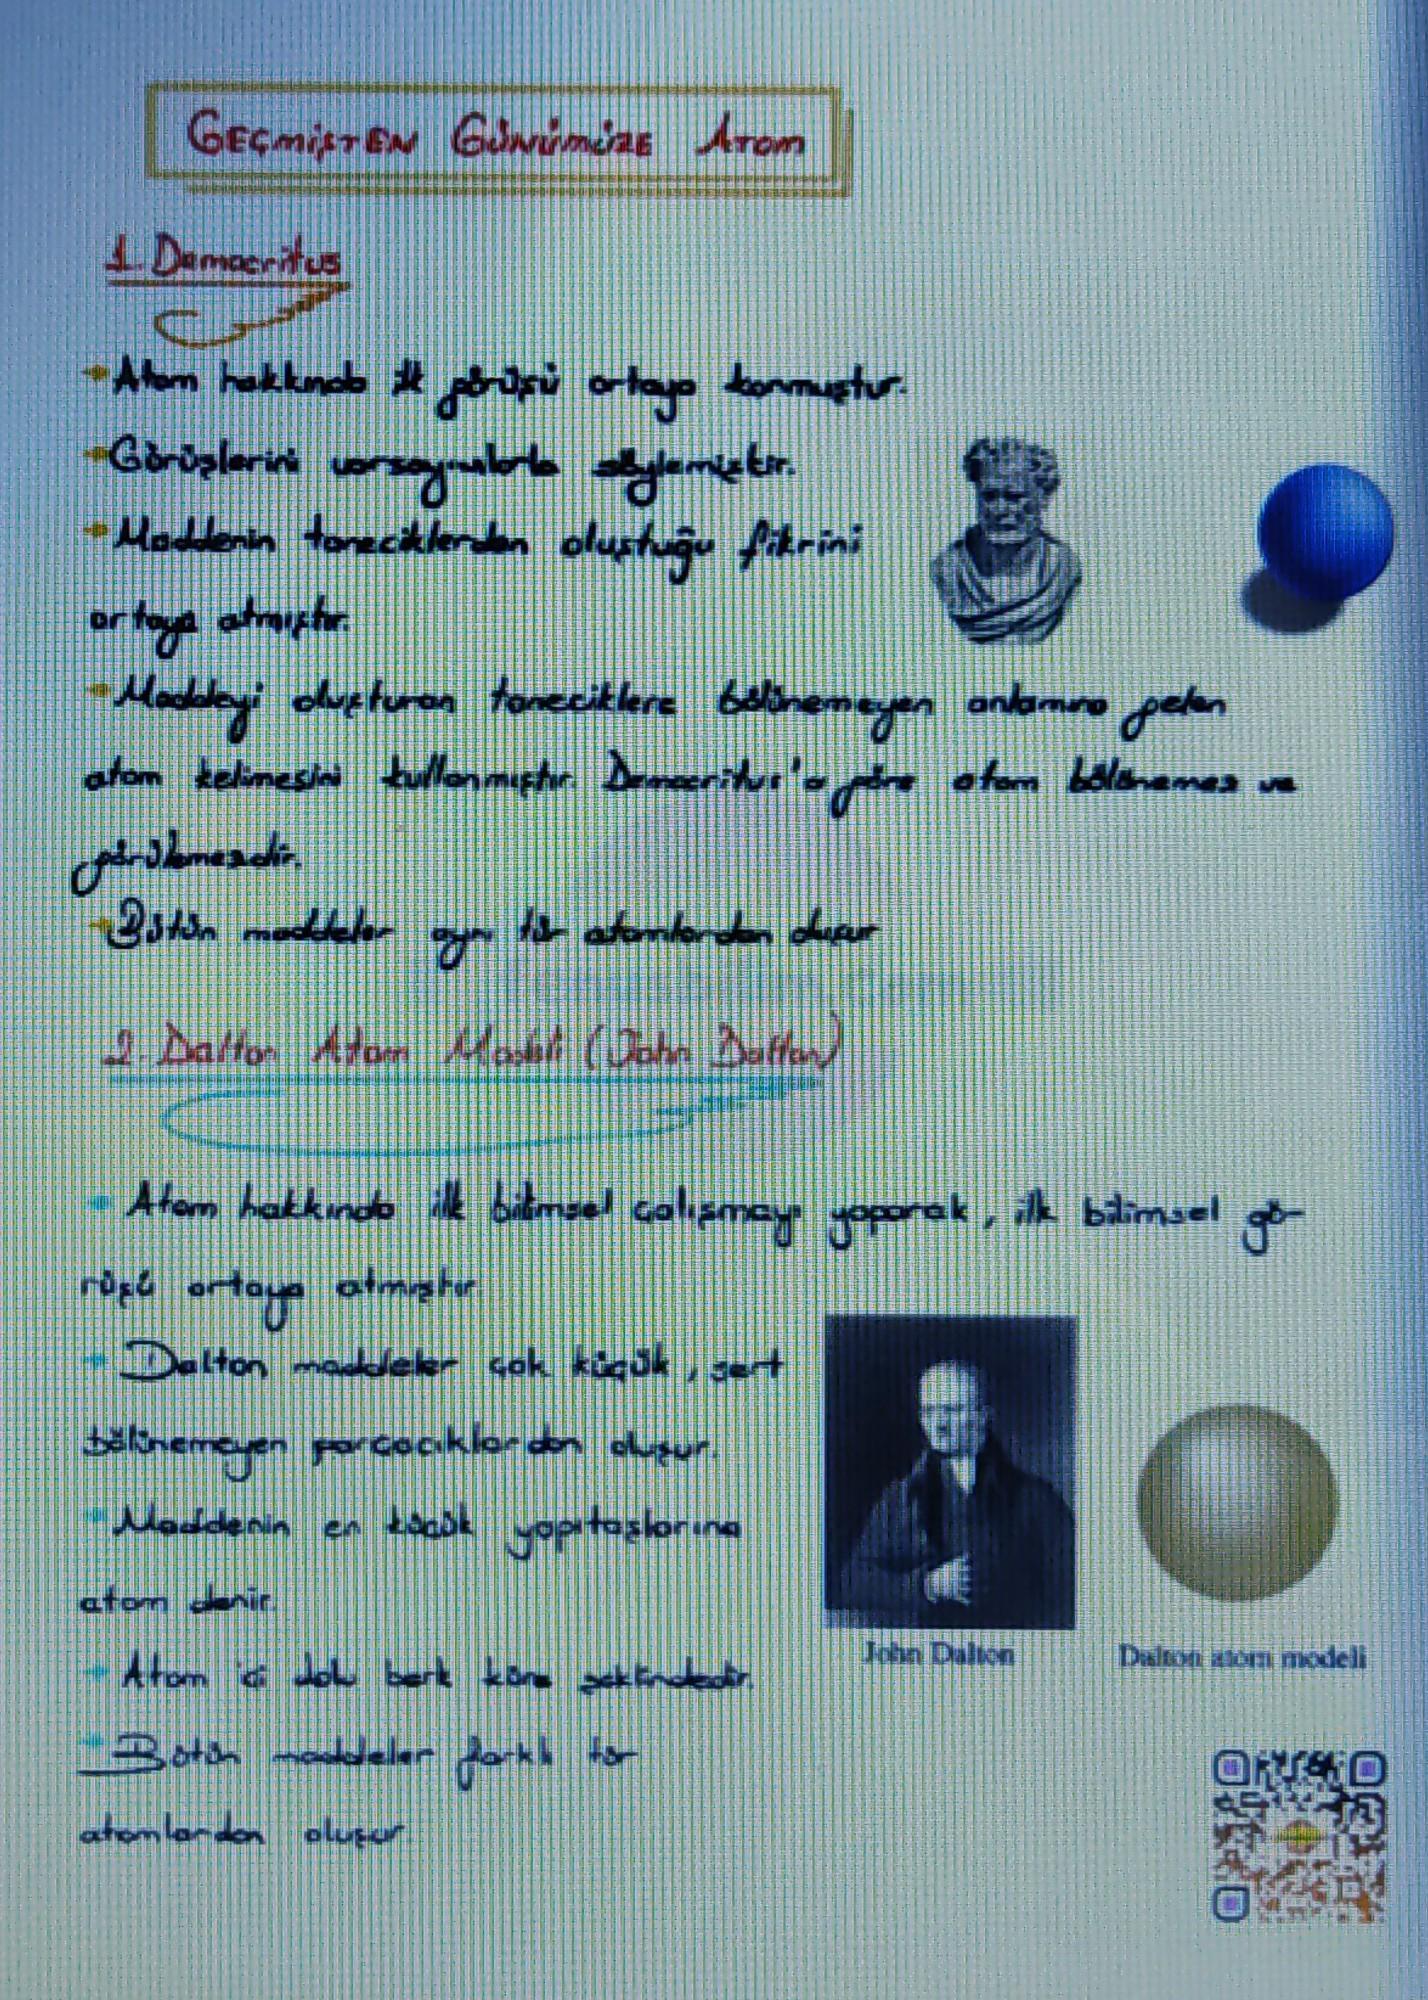 GEÇMİŞTEN GÜNÜMÜZE ATOM
1. Democritus
Atom hakkında ilk görüşü ortaya konmuştur.
Görüşlerini varsayımlarla söylemiştir.
Maddenin taneciklerden oluştuğu fikrini
ortaya atmıştır.
Maddeyi oluşturan taneciklere bölünemeyen anlamına gelen
atom kelimesini kullanmıştır. Democritus'a göre atom bölünemez ve
görülemezdir.
Bütün maddeler aynı tür atomlardan oluşur
2. Dalton Atom Modeli (John Dalton)
Atom hakkında ilk bilimsel çalışmayı yaparak, ilk bilimsel gö-
rüşü ortaya atmıştır.
Dalton maddeler çok küçük, sert
bölünemeyen parçacıklardan oluşur.
Maddenin en küçük yapıtaşlarına
atom denir.
Atom içi dolu berk küre şeklindedir.
Bütün maddeler farklı tür
atomlardan oluşur.
John Dalton
Dalton atom modeli